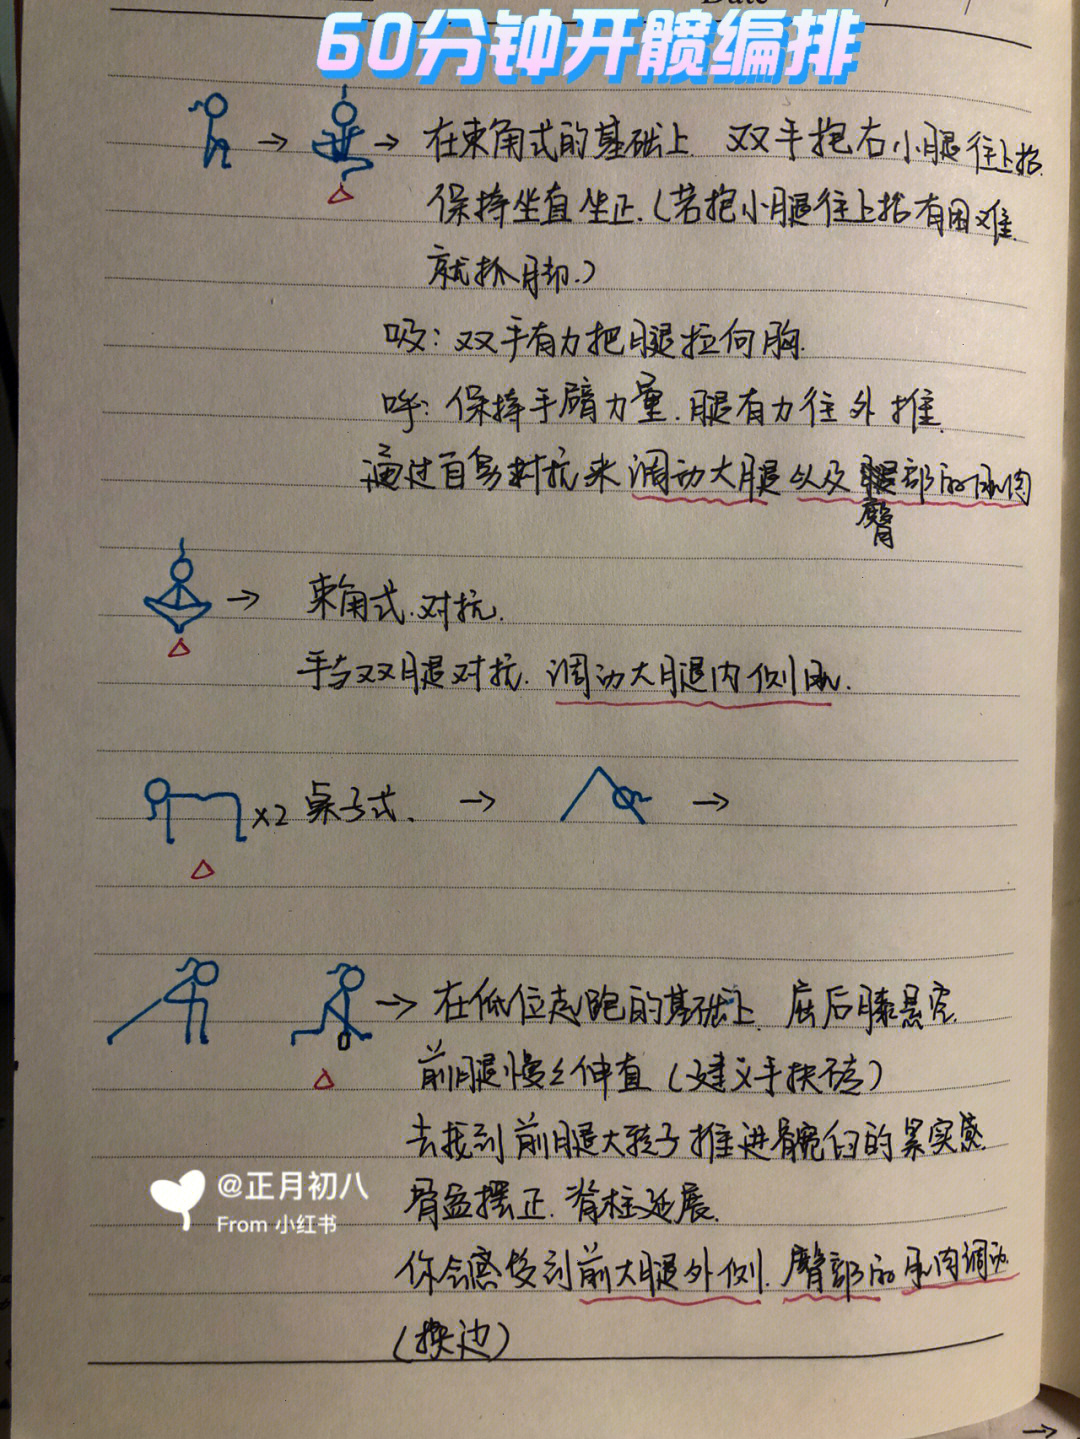 Date
60分钟开髋编排
→ → 在束角式的基础上 双手抱右小腿往上抬.
保持坐直坐正.(若抱小腿往上抬有困难
就抓脚.)
吸: 双手有力把腿拉向胸.
呼: 保持手臂力量.腿有力往外推
通过自身对抗来调动大腿以及臀部的肌肉
→ 束角式.对抗.
手与双腿对抗.调动大腿内侧肌.
×2 桌子式. → →
→ 在低位起跑的基础上.屈后膝悬空.
前腿慢慢伸直(建议手扶砖)
去找到前腿大转子推进髋臼的累实感
骨盆摆正.脊柱延展.
你会感受到前大腿外侧.臀部的肌肉调动.
(换边)
@正月初八
From 小红书
→